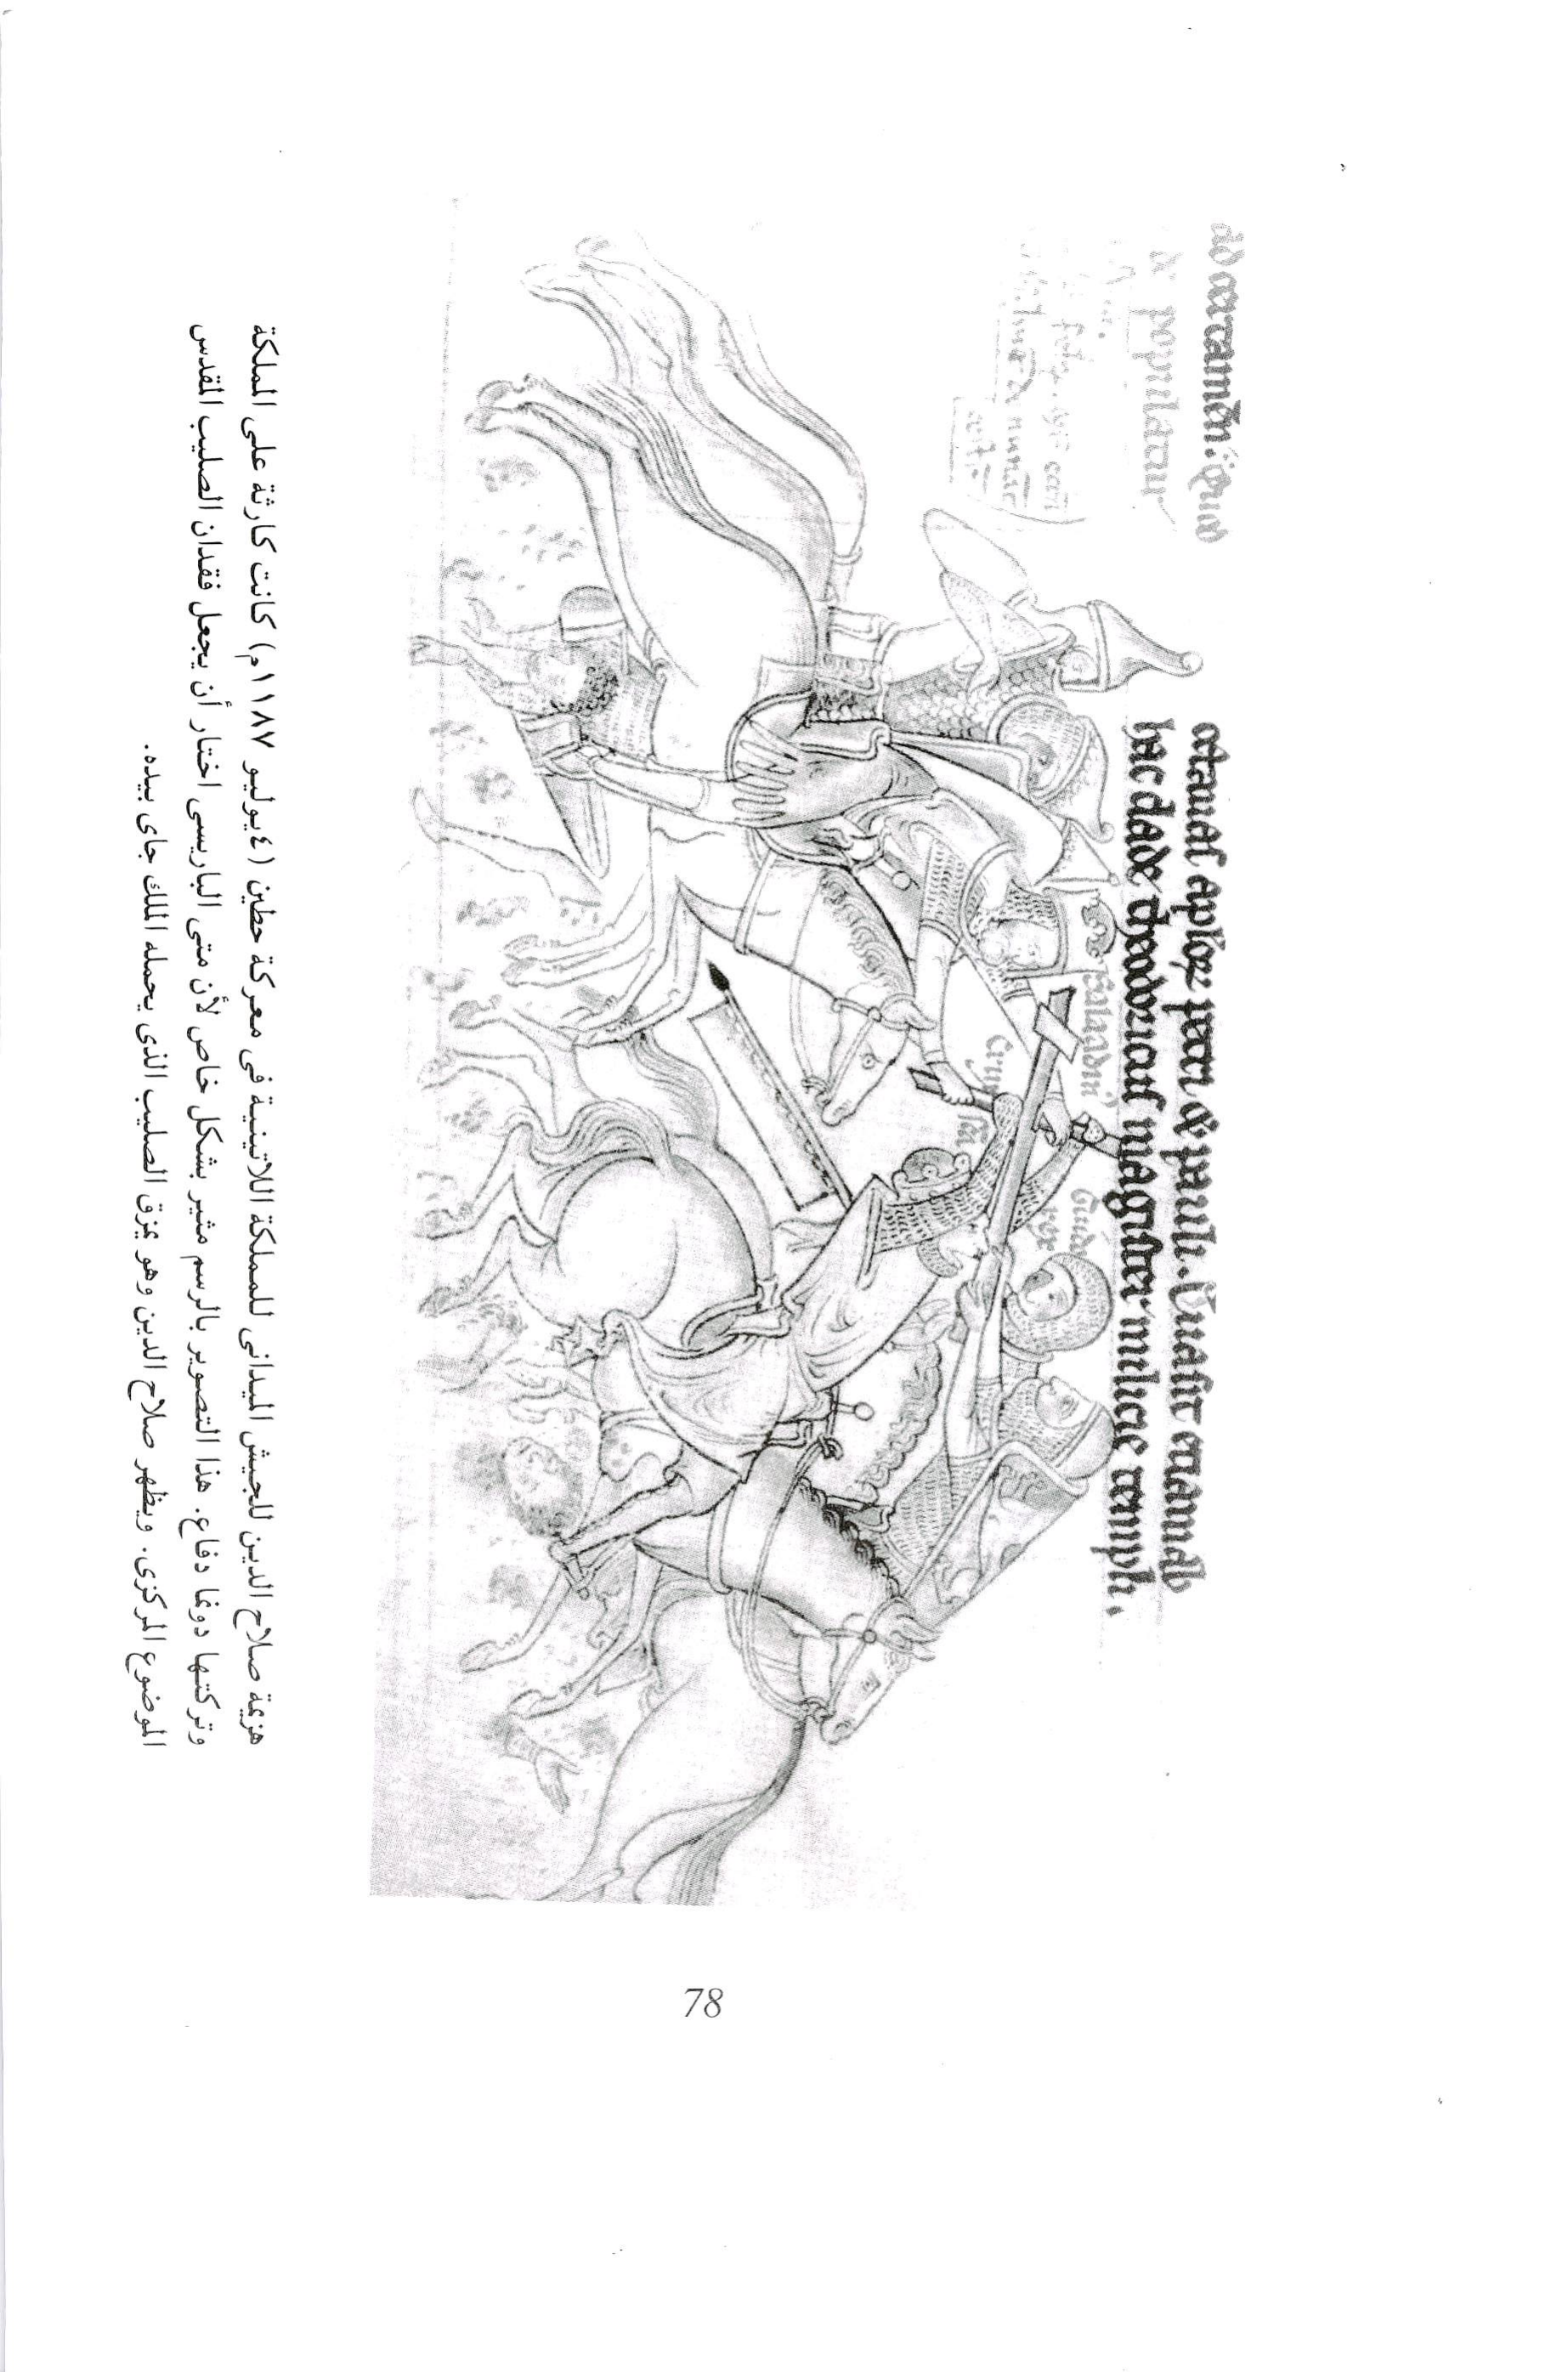 octaues aplor petri & pauli. Euasit tamen
hac clade theodericus magister milicie templi.
& popularit
Saladin'
Crux
sca
Guido
rex
هزيمة صلاح الدين للجيش الميدانى للمملكة اللاتينية فى معركة حطين (٤يوليو ١١٨٧م) كانت كارثة على المملكة
وتركتها دونما دفاع. هذا التصوير بالرسم مثير بشكل خاص لأن متى الباريسى اختار أن يجعل فقدان الصليب المقدس
الموضوع المركزى. ويظهر صلاح الدين وهو يمزق الصليب الذى يحمله الملك جاى بيده.
78